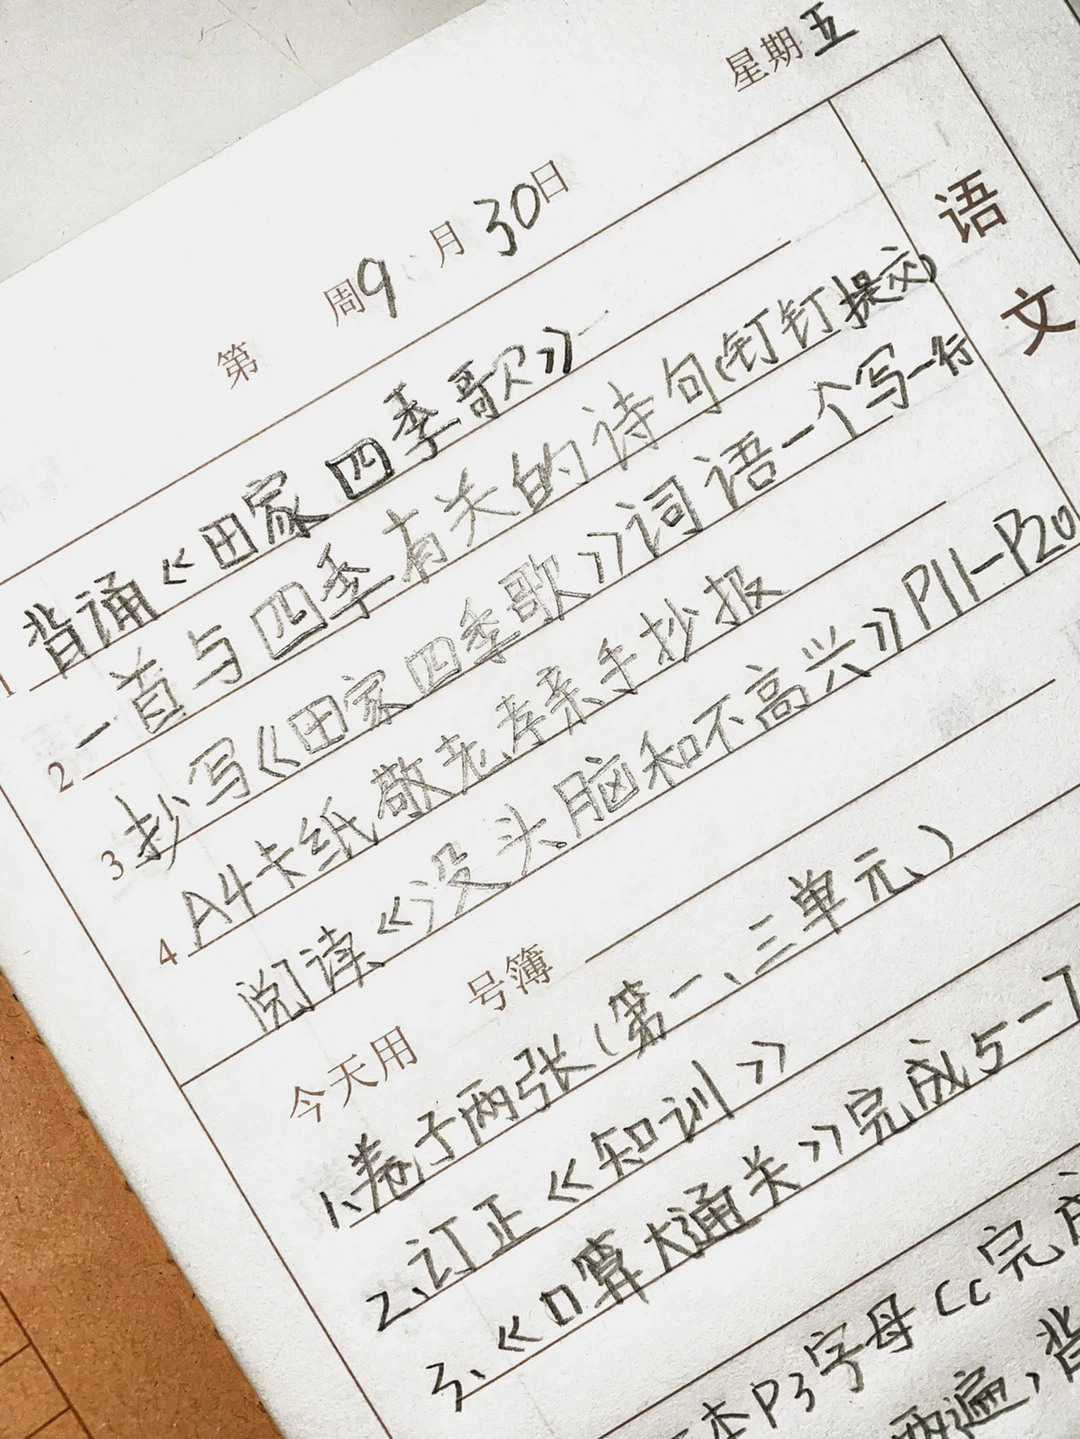 星期五
第 周9月30日
语文
背诵《田家四季歌》
1 一首与四季有关的诗句(钉钉提交)
2 抄写《田家四季歌》词语一个写一行
3 A4卡纸敬老孝亲手抄报
4 阅读《没头脑和不高兴》P11-P20
今天用 号簿
1、卷子两张(第一、三单元)
2、订正《知训》
3、《口算大通关》完成5-7
本P3字母Cc完成
两遍,背